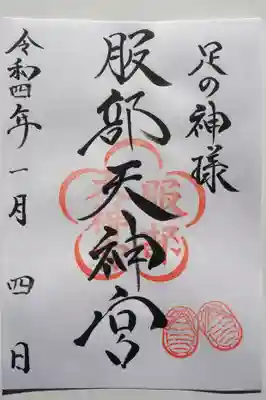 足の神様
服部天神宮
令和四年一月四日
服部
天神